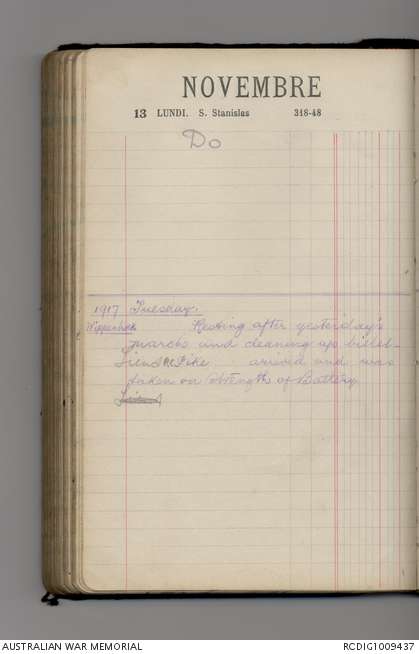 NOVEMBRE
13 LUNDI. S. Stanislas 318-48
Do
1917 Tuesday.
Resting after yesterday's
march and cleaning up billet.
Pike arrived and was
taken on strength of Battery
AUSTRALIAN WAR MEMORIAL RCDIG1009437